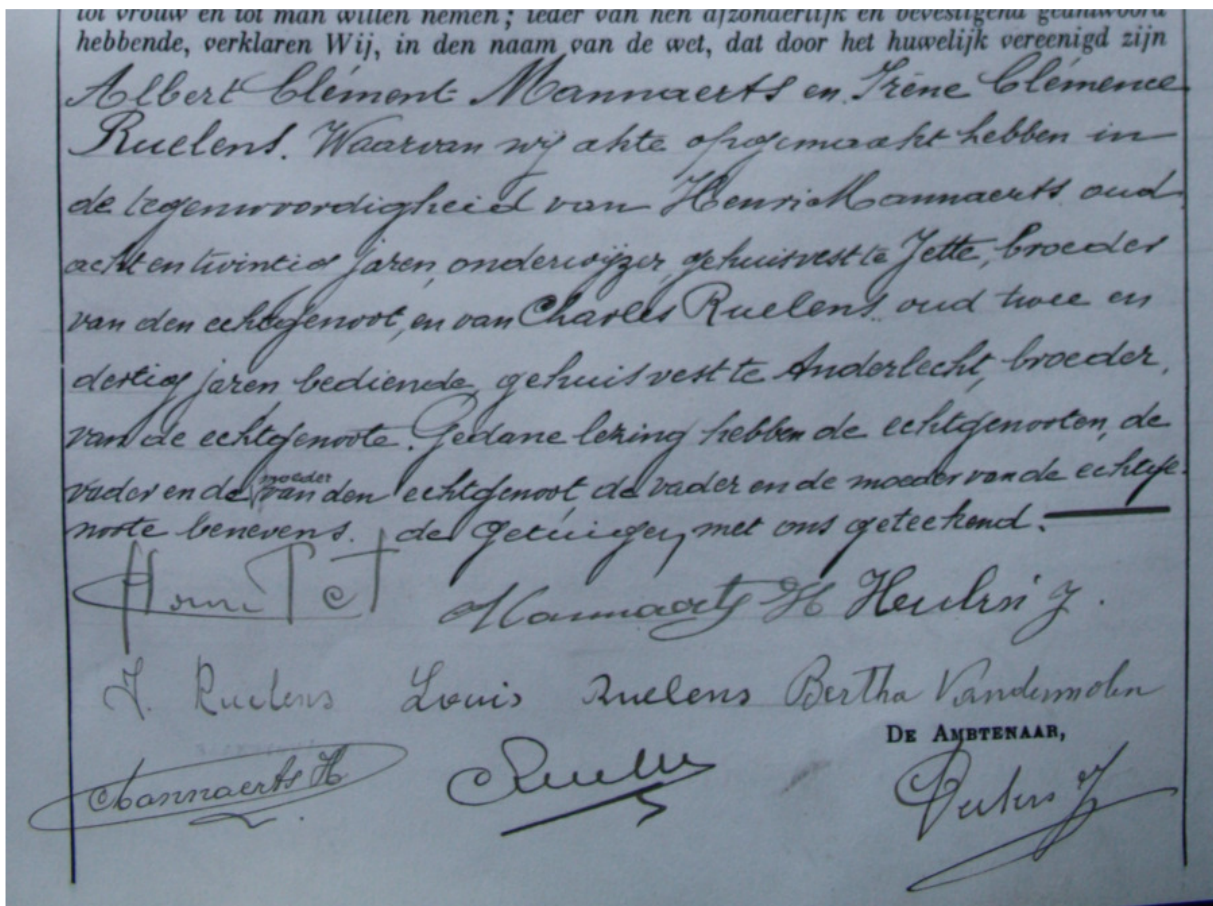 tot vrouw en tot man willen nemen; ieder van hen afzonderlijk en bevestigend geantwoord
hebbende, verklaren Wij, in den naam van de wet, dat door het huwelijk vereenigd zijn
Albert Clément Mannaerts en Irène Clémence
Ruelens. Waarvan wij akte opgemaakt hebben in
de tegenwoordigheid van Henri Mannaerts oud
acht en twintig jaren, onderwijzer, gehuisvest te Jette, broeder
van den echtgenoot, en van Charles Ruelens oud twee en
dertig jaren bediende, gehuisvest te Anderlecht, broeder,
van de echtgenoote. Gedane lezing hebben de echtgenooten, de
moeder
vader en de van den echtgenoot, de vader en de moeder van de echtge-
noote benevens de getuigen, met ons geteekend.
Mannaerts H
J. Ruelens Louis Ruelens Bertha Vandermolen
DE AMBTENAAR,
Mannaerts H